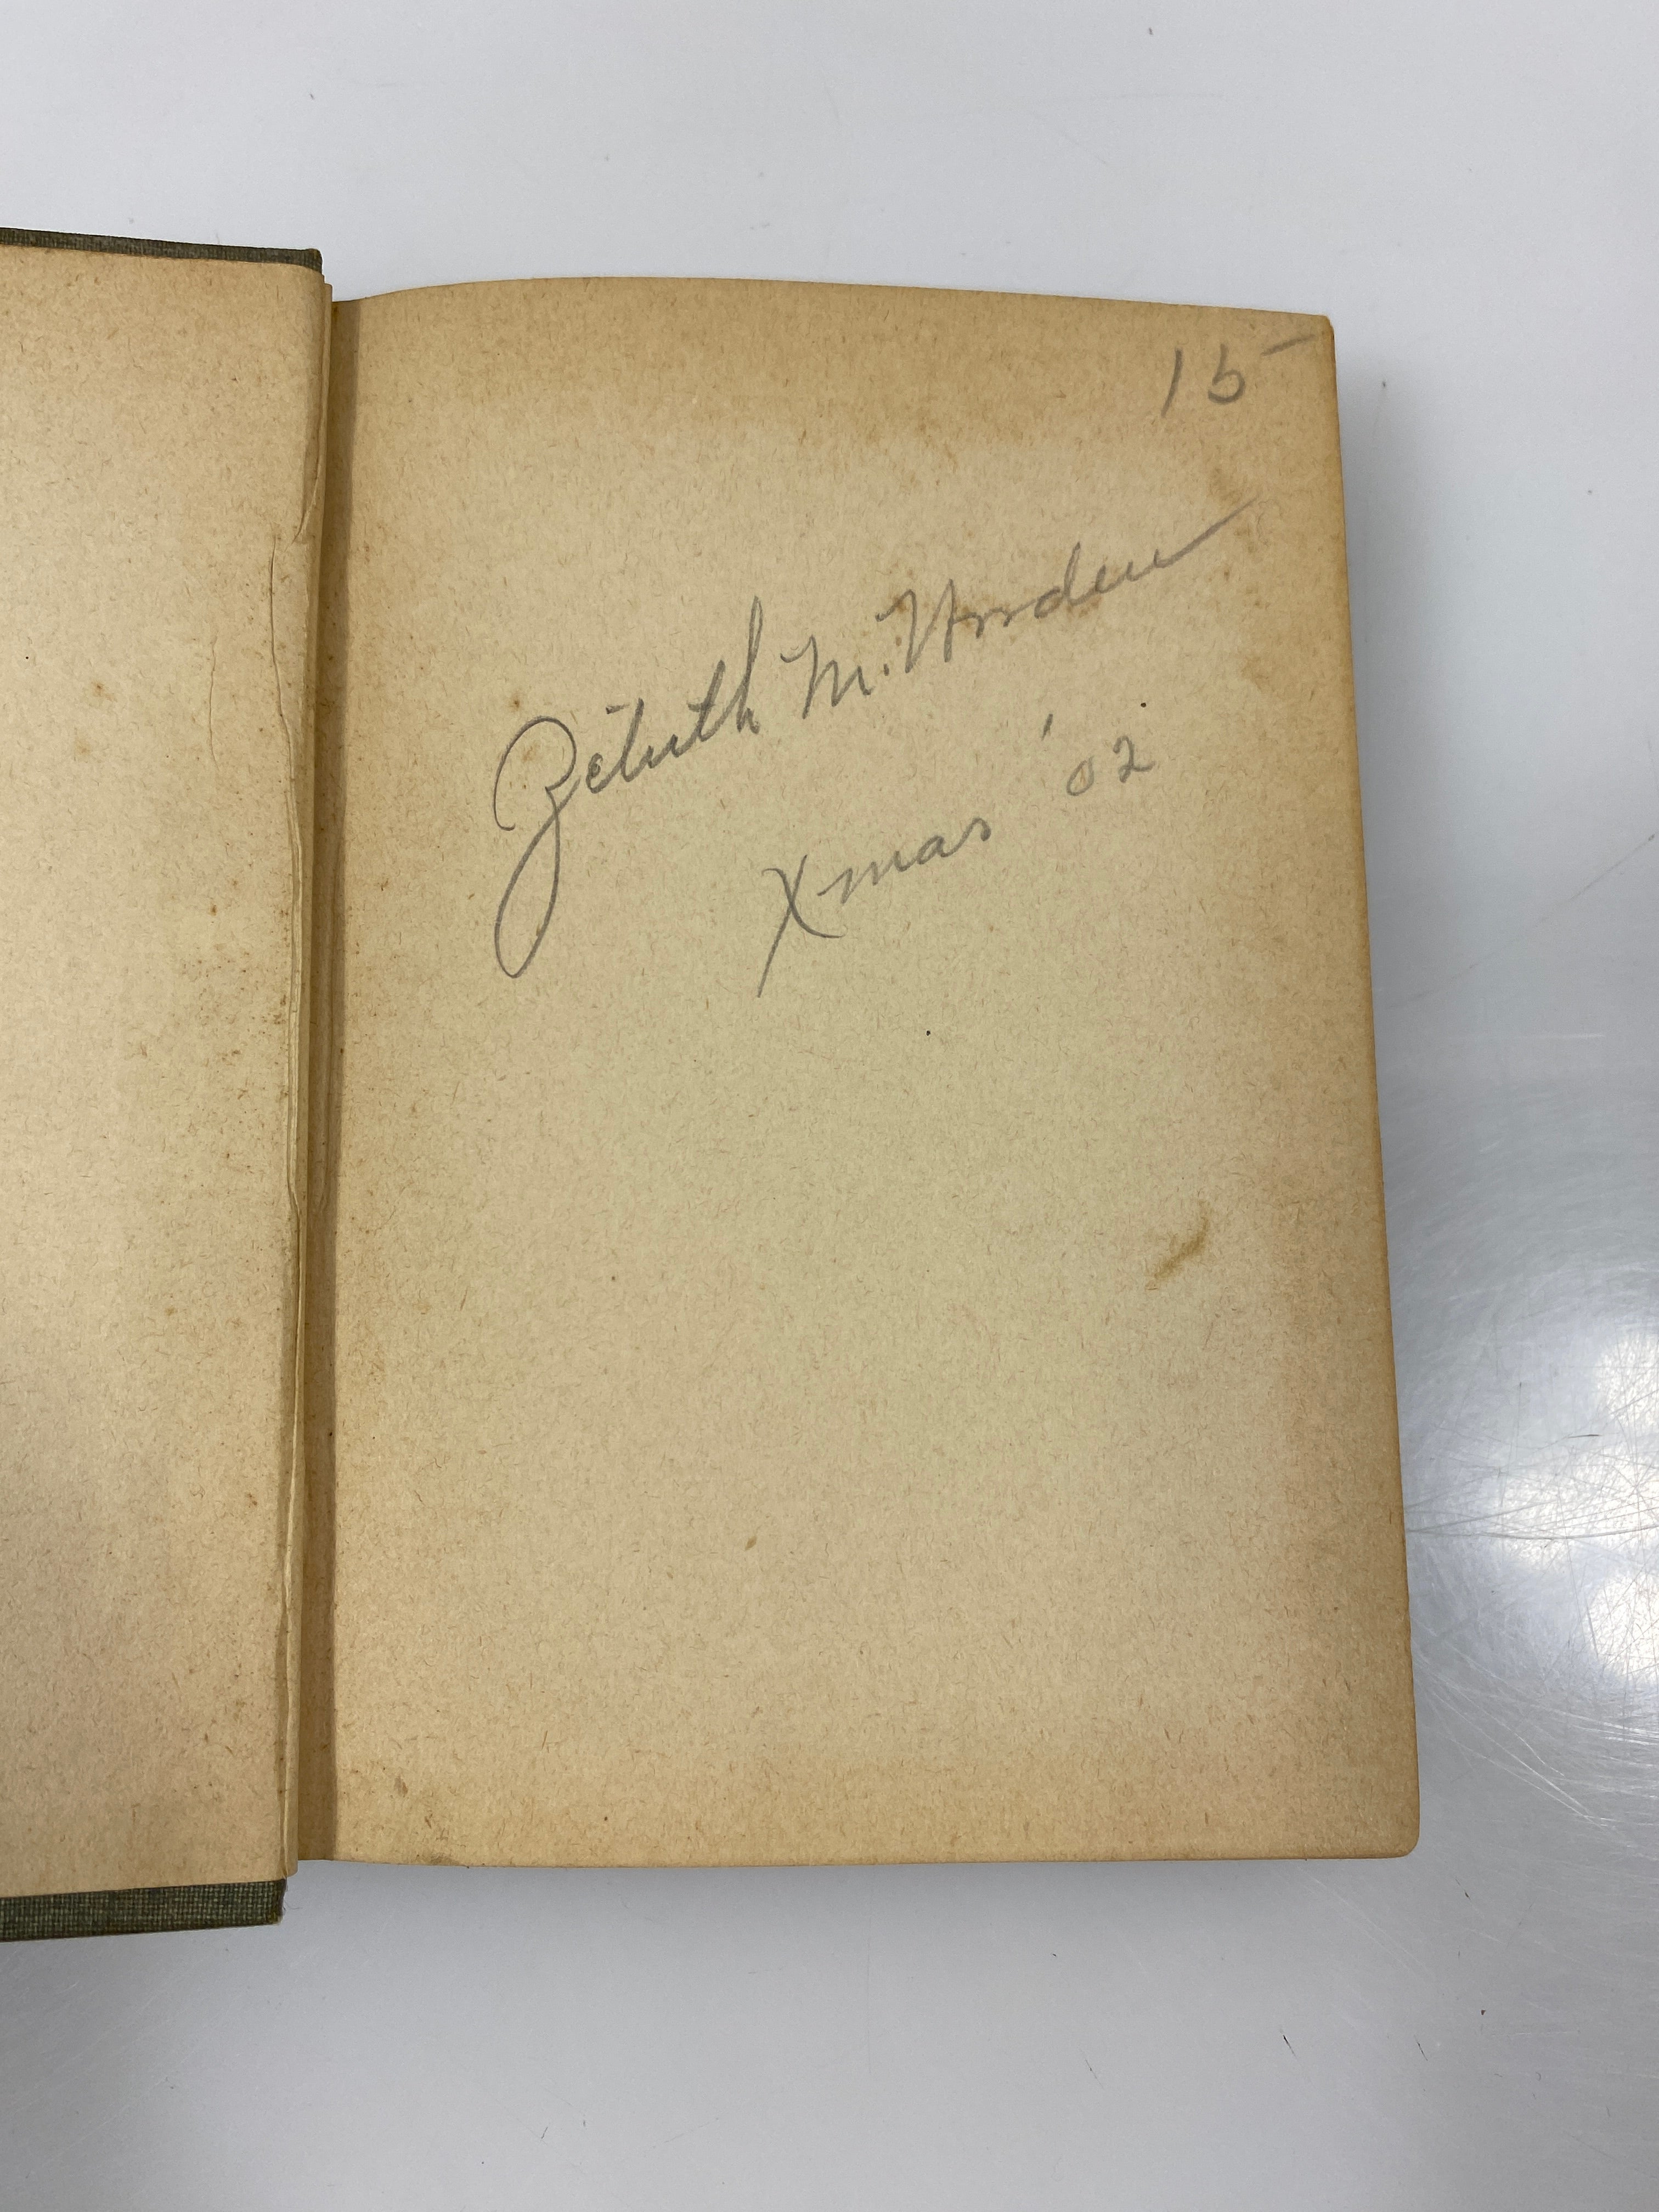 15
Zeluth M. Worden
Xmas '02